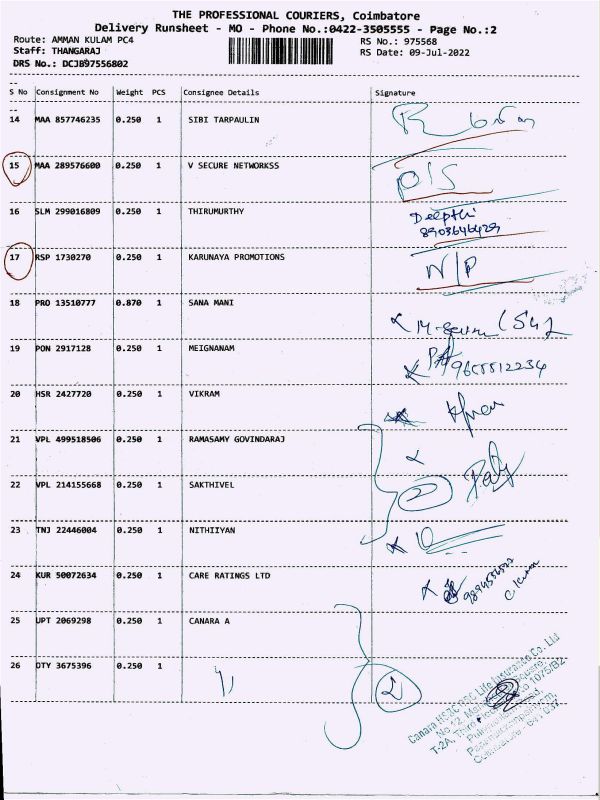 THE PROFESSIONAL COURIERS, Coimbatore
Delivery Runsheet - MO - Phone No.:0422-3505555 - Page No.:2
Route: AMMAN KULAM PC4 RS No.: 975568
Staff: THANGARAJ RS Date: 09-Jul-2022
DRS No.: DCJ897556802
--
S No Consignment No Weight PCS Consignee Details Signature
--
14 MAA 857746235 0.250 1 SIBI TARPAULIN
15 MAA 289576600 0.250 1 V SECURE NETWORKSS
16 SLM 299016809 0.250 1 THIRUMURTHY Deepthi
8903646429
17 RSP 1730270 0.250 1 KARUNAYA PROMOTIONS N/P
18 PRO 13510777 0.870 1 SANA MANI
19 PON 2917128 0.250 1 MEIGNANAM 9655512234
20 HSR 2427720 0.250 1 VIKRAM
21 VPL 499518506 0.250 1 RAMASAMY GOVINDARAJ
22 VPL 214155668 0.250 1 SAKTHIVEL 2
23 TNJ 22446004 0.250 1 NITHIIYAN
24 KUR 50072634 0.250 1 CARE RATINGS LTD
25 UPT 2069298 0.250 1 CANARA A
26 OTY 3675396 0.250 1
Canara HSBC Life Insurance Co. Ltd